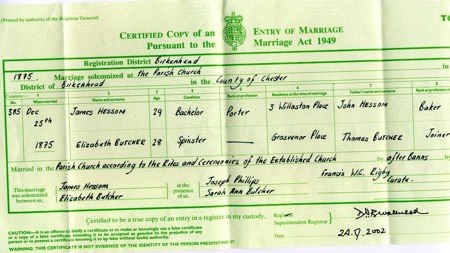 (Printed by authority of the Registrar General)
CERTIFIED COPY of an ENTRY OF MARRIAGE
Pursuant to the Marriage Act 1949
Registration District Birkenhead
1875. Marriage solemnized at the Parish Church
District of Birkenhead in the County of Chester
No. When married Name and surname Age Condition Rank or profession Residence at the time of marriage Father's name and surname Rank or profession
385 Dec 25th 1875 James HESSOM 29 Bachelor Porter 3 Willaston Place John HESSOM Baker
Elizabeth BUTCHER 28 Spinster — Grosvenor Place Thomas BUTCHER Joiner
Married in the Parish Church according to the Rites and Ceremonies of the Established Church by after Banns
This marriage was solemnized between us, James Hessom Elizabeth Butcher in the presence of Joseph Phillips Sarah Ann Butcher Francis W.C. Rigby Curate.
Certified to be a true copy of an entry in a register in my custody.
Superintendent Registrar
2002
CAUTION:—It is an offence to falsify a certificate or to make or knowingly use a false certificate
or a copy of a false certificate intending it to be accepted as genuine to the prejudice of any
person or to possess a certificate knowing it to be false without lawful authority.
WARNING: THIS CERTIFICATE IS NOT EVIDENCE OF THE IDENTITY OF THE PERSON PRESENTING IT